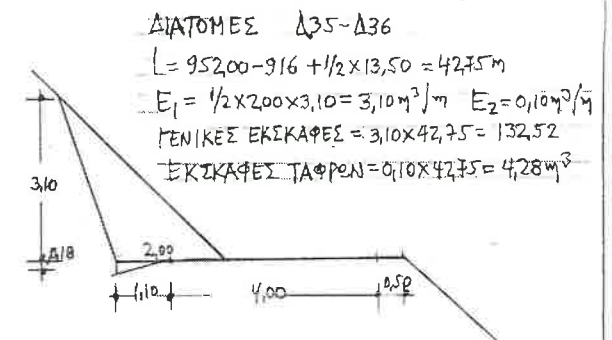 ΔΙΑΤΟΜΕΣ Δ35-Δ36
L = 952,00-916 + 1/2 x 13,50 = 42,75 m
E₁ = 1/2 x 2,00 x 3,10 = 3,10 m³/m E₂ = 0,10 m³/m
ΓΕΝΙΚΕΣ ΕΚΣΚΑΦΕΣ = 3,10 x 42,75 = 132,52
ΕΚΣΚΑΦΕΣ ΤΑΦΡΩΝ = 0,10 x 42,75 = 4,28 m³
3,10
2,00
1,10
4,00
0,50